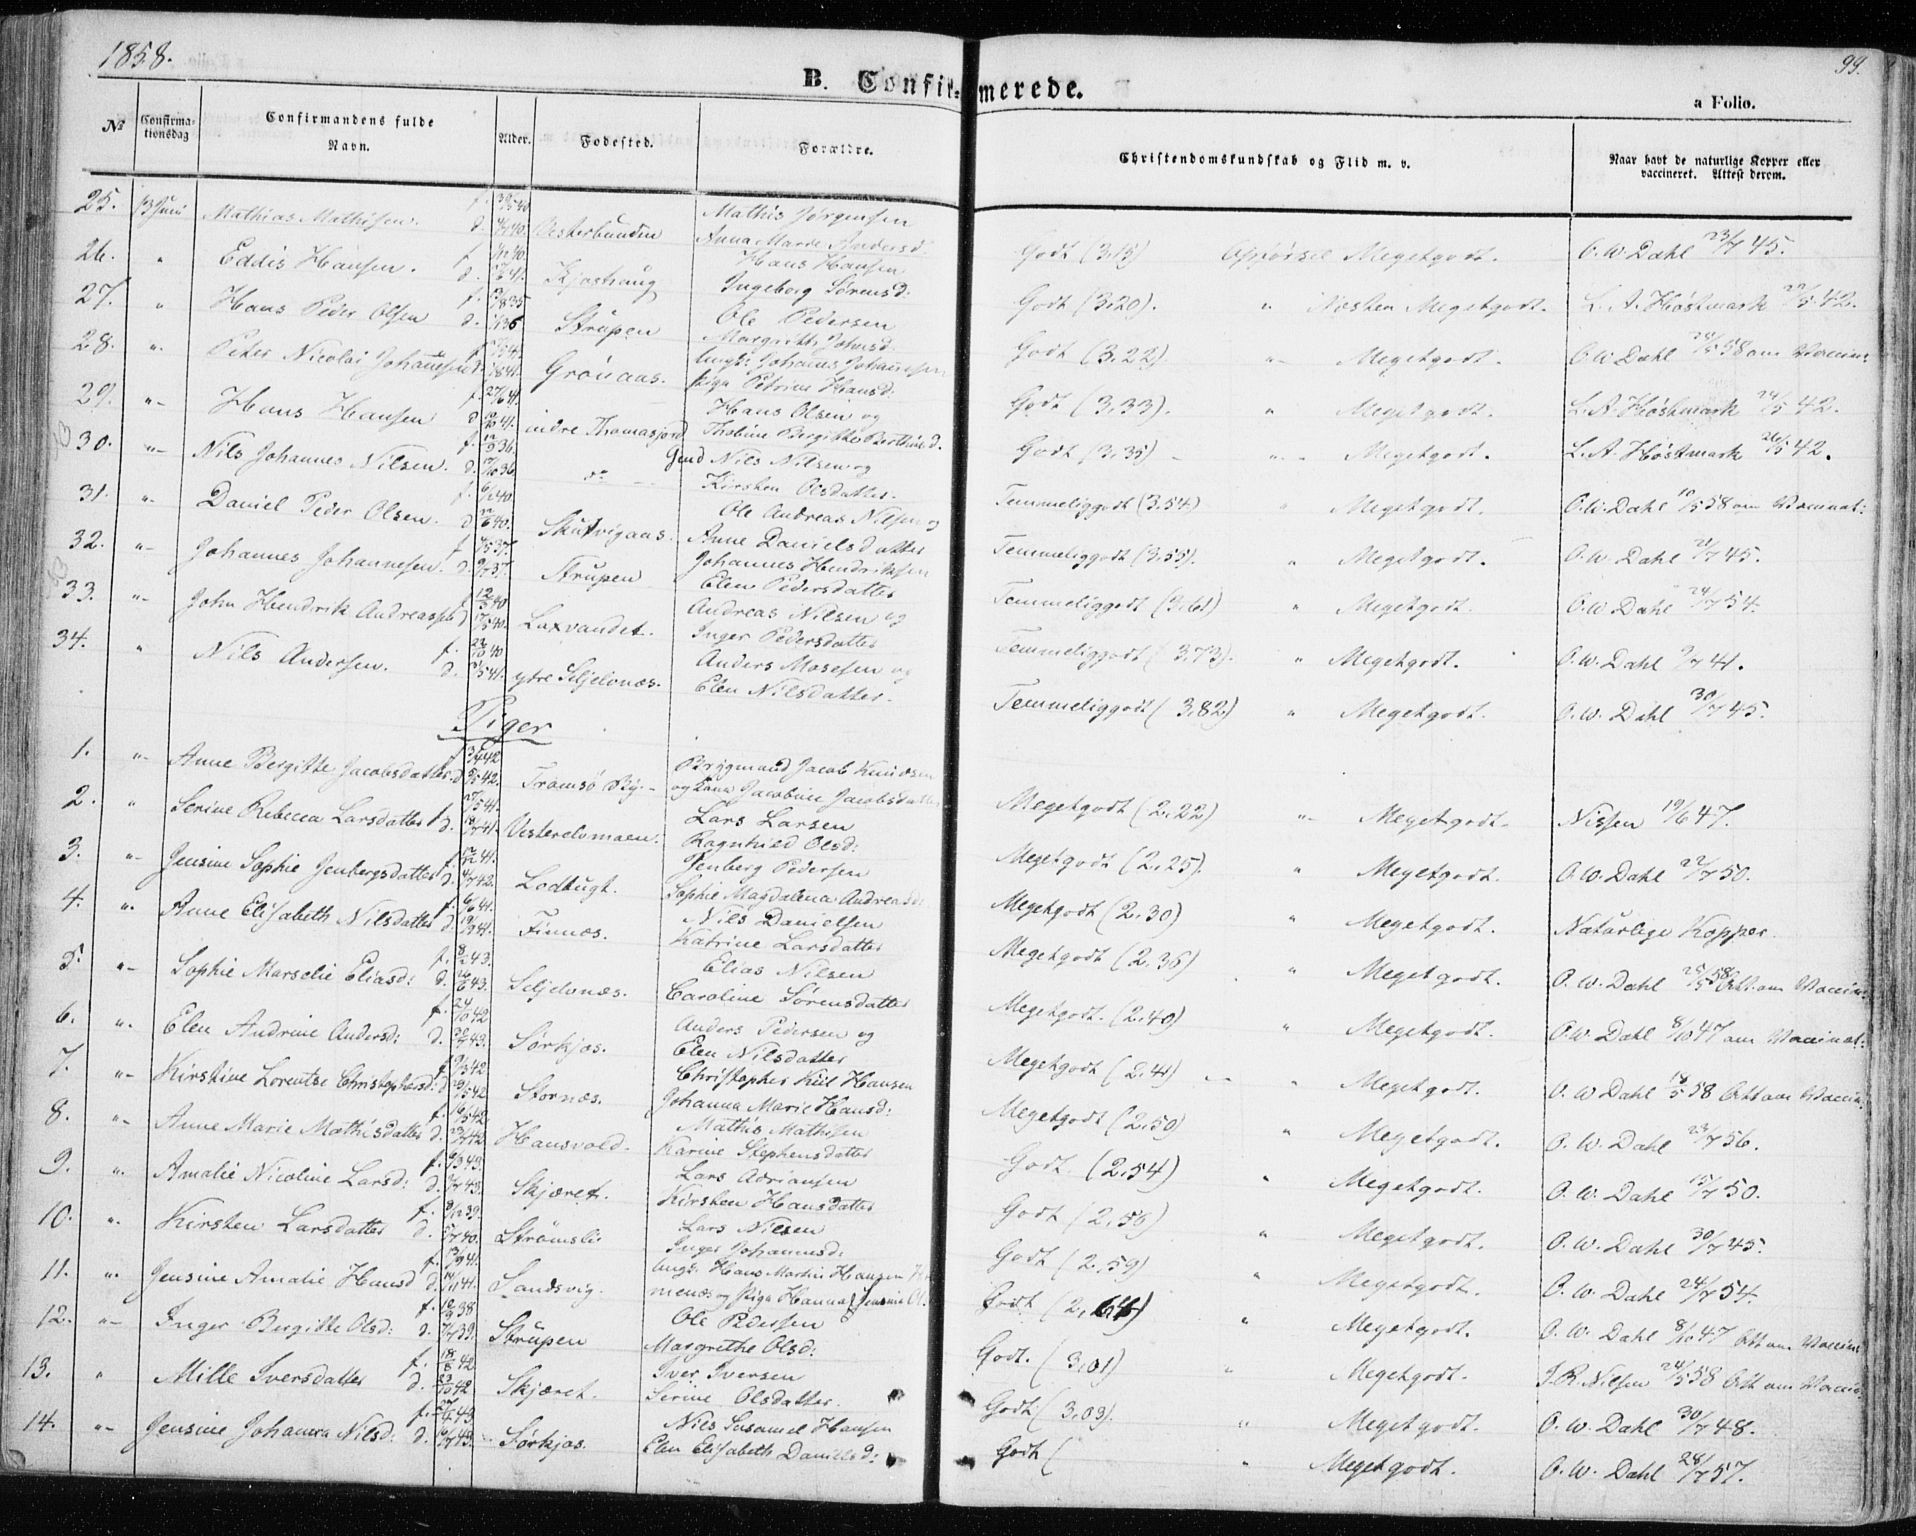 1858.
99.
B. Confirmerede.
a Folio.
№ Confirmationsdag Confirmandens fulde Navn. Alder. Fødested. Forældre. Christendomskundskab og Flid m. v. Naar havt de naturlige Kopper eller vaccineret. Attest derom.
25. 13 Juni Mathias Mathisen. Vesterbunden Mathis Jørgensen Anna Marie Andersd. Godt (3,15) Opførsel Megetgodt. O. W. Dahl 23/7 45.
26. " Eddis Hansen. Kjoshaug Hans Hansen Ingeborg Sørensd: Godt (3,20). " Næsten Megetgodt. L. A. Høstmark 42.
27. " Hans Peder Olsen Strupen Ole Pedersen Margrithe Johnsd. Godt (3,22) " Megetgodt. O. W. Dahl 58 om Vaccin:
28. " Peter Nicolai Johannesen Grønaas. Ungk: Johannes Johannesen Piga Petrine Hansd: Godt (3,33). " Megetgodt. L. A. Høstmark 24/5 42.
29. " Hans Hansen indre Thomasjord Hans Olsen og Thobine Bergitte Berthine d. Godt (3,35) " Megetgodt. L. A. Høstmark 26/5 42.
30. " Nils Johannes Nilsen. do Gmd Nils Nilsen og Kirsten Olsdatter. Temmeliggodt (3,54) " Megetgodt. O. W. Dahl 10/5 58 om Vaccinat:
31. " Daniel Peder Olsen. Skutvigaas. Ole Andreas Nilsen og Anne Danielsdatter Temmeliggodt (3,55). " Megetgodt. O. W. Dahl 21/7 45.
32. " Johannes Johannesen. Strupen Johannes Hendriksen Elen Pedersdatter Temmeliggodt (3,61) " Megetgodt. O. W. Dahl 24/7 54.
33. " John Hendrik Andreassen Laxvandet. Andreas Nilsen og Inger Pedersdatter Temmeliggodt (3,73). " Megetgodt. O. W. Dahl 9/7 41.
34. " Nils Andersen. ytre Seljelvnæs. Anders Mosesen og Elen Nilsdatter. Temmeliggodt (3,82) " Megetgodt. O. W. Dahl 30/7 45.
Piger
1. " Anne Bergitte Jacobsdatter Tromsø By. Brygmand Jacob Knudsen og Kone Jacobine Jacobsdatter Megetgodt (2,22) " Megetgodt. Nissen 19/6 47.
2. " Serine Rebecca Larsdatter Vesterelvmoen. Lars Larsen Ragnhild Olsd: Megetgodt (2,25). " Megetgodt. O. W. Dahl 22/7 50.
3. " Jensine Sophie Jenbergsdatter Lodbugt. Jenberg Pedersen Sophie Magdalena Andreasd: Megetgodt (2,30) " Megetgodt. Naturlige Kopper.
4. " Anne Elisabeth Nilsdatter Finnæs. Nils Danielsen Katrine Larsdatter Megetgodt (2,36) " Megetgodt. O. W. Dahl 25/5 58 Att. om Vaccin:
5. " Sophie Marselie Eliasd: Seljelvnæs. Elias Nilsen Caroline Sørensdatter Megetgodt. (2,40) " Megetgodt. O. W. Dahl 8/10 47 om Vaccinat:
6. " Elen Andrine Andersd: Sørkjos. Anders Pedersen og Elen Nilsdatter Megetgodt (2,41) " Megetgodt. O. W. Dahl 18/5 58 Att om Vaccin:
7. " Kirstine Lorentse Christophersd: Stornæs. Christopher Keil Hansen Johanna Marie Hansd: Megetgodt (2,50) " Megetgodt. O. W. Dahl 23/7 56.
8. " Anne Marie Mathisdatter Hansvold. Mathis Mathisen Karine Stephensdatter Godt. (2,54) " Megetgodt. O. W. Dahl 15/7 50.
9. " Amalie Nicoline Larsd: Skjæret. Lars Adriansen Kirsten Hansdatter Godt (2,56) " Megetgodt. O. W. Dahl 30/7 45.
10. " Kirsten Larsdatter Strømsli Lars Nilsen Inger Johannsd: Godt (2,59) " Megetgodt. O. W. Dahl 24/7 54.
11. " Jensine Amalie Hansd Sandsvig. Ungk: Hans Martin Hansen menæs og Piga Hanna Jensine Ol. Godt (2,64) " Megetgodt. O. W. Dahl 8/10 47 Att om Vaccin:
12. " Inger Birgitte Olsd: Strupen Ole Pedersen Margrethe Olsd: Godt. (3,01) " Megetgodt. J. R. Nilsen 24/5 58 Att om Vaccin:
13. " Mille Iversdatter 18/8 42 23/10 42 Skjæret. Iver Iversen Serine Olsdatter. Godt: (3,03). " Megetgodt. O. W. Dahl 30/7 48.
14. " Jensine Johanna Nilsd: Sørkjos. Nils Susamel Hansen Elen Elisabeth Danielsd: Godt ( " Megetgodt. O. W. Dahl 28/7 57.